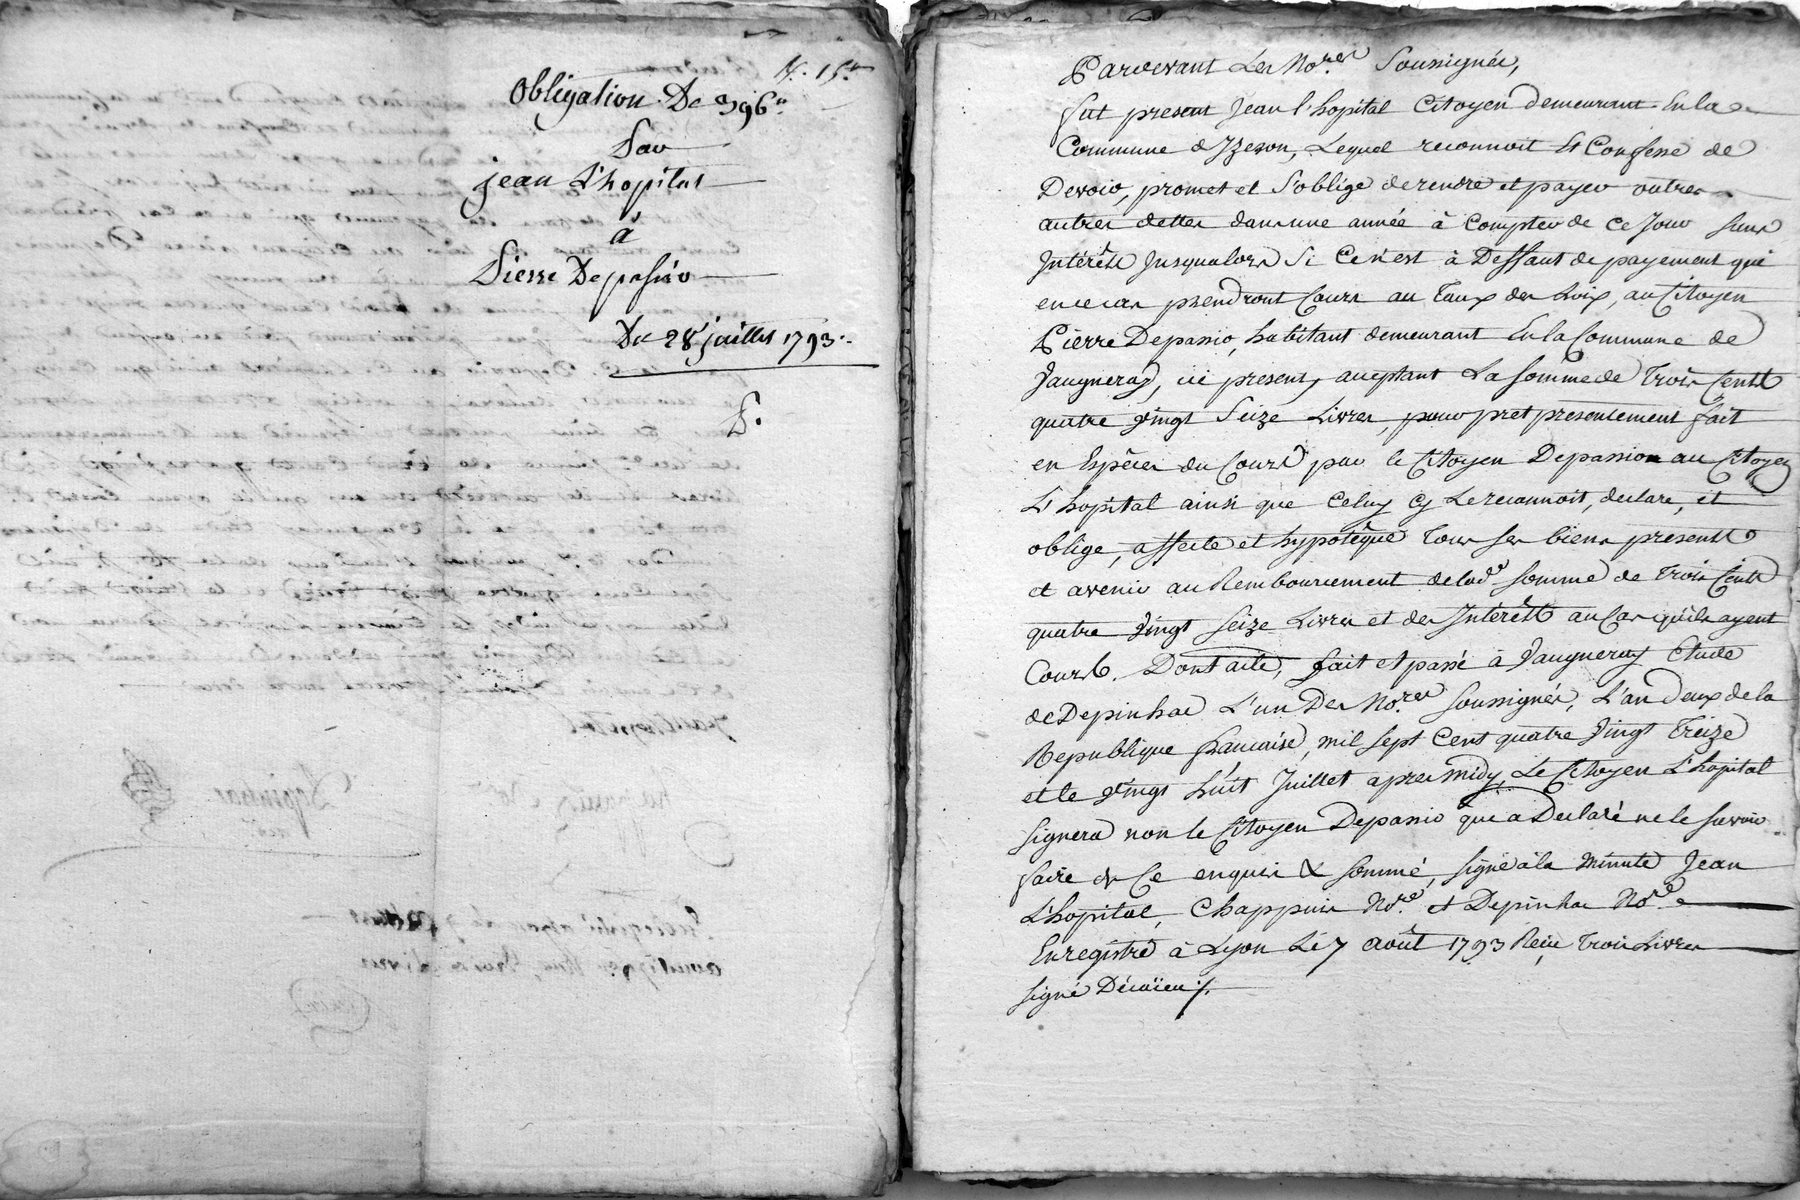 N.° 15.
Obligation De 396.#
Par
jean L'hopital
à
Pierre Depassio
Du 28 juillet 1793.
P.
Pardevant Les No.res Soussignés,
fut present Jean l'hopital Citoyen demeurant En la
Commune d'Izeron, Lequel reconnoit Et Confesse de
Devoir, promet et S'oblige de rendre et payer outres
autres dettes dans une année à Compter de Ce Jour Sans
Intérêts Jusqualors Si Ce n'est à Deffaut de payement qui
en ce cas prendront Cours au Taux des Loix, au Citoyen
Pierre Depassio, habitant demeurant En la Commune de
Vaugneray, ici present, acceptant La Somme de Trois Cents
quatre Vingt Seize Livres, pour pret presentement fait
en Espèces du Cours par le Citoyen Depassion au Citoyen
L'hopital ainsi que Celuy Cy Le reconnoit, declare, et
oblige, affecte et hypotèque Tous Ses biens presents
et avenir au Remboursement de lad.e Somme de Trois Cents
quatre Vingt Seize Livres et des Intérêts au Cas qu'ils ayent
Cours. Dont acte, fait et passé à Vaugneray Etude
de Depinhac L'un Des No.res Soussignés, L'an Deux de la
Republique française, mil Sept Cent quatre Vingt Treize
et le Vingt huit Juillet apres midy, Le Citoyen L'hopital
Signera non le Citoyen Depassio qui a Declaré ne le Savoir
faire de Ce enquis & Sommé, Signé à la Minute Jean
L'hopital, Chappuis No.re et Depinhac No.re
Enregistré à Lyon Le 7 août 1793 Reçu Trois Livres
Signé Décaïeu ./.